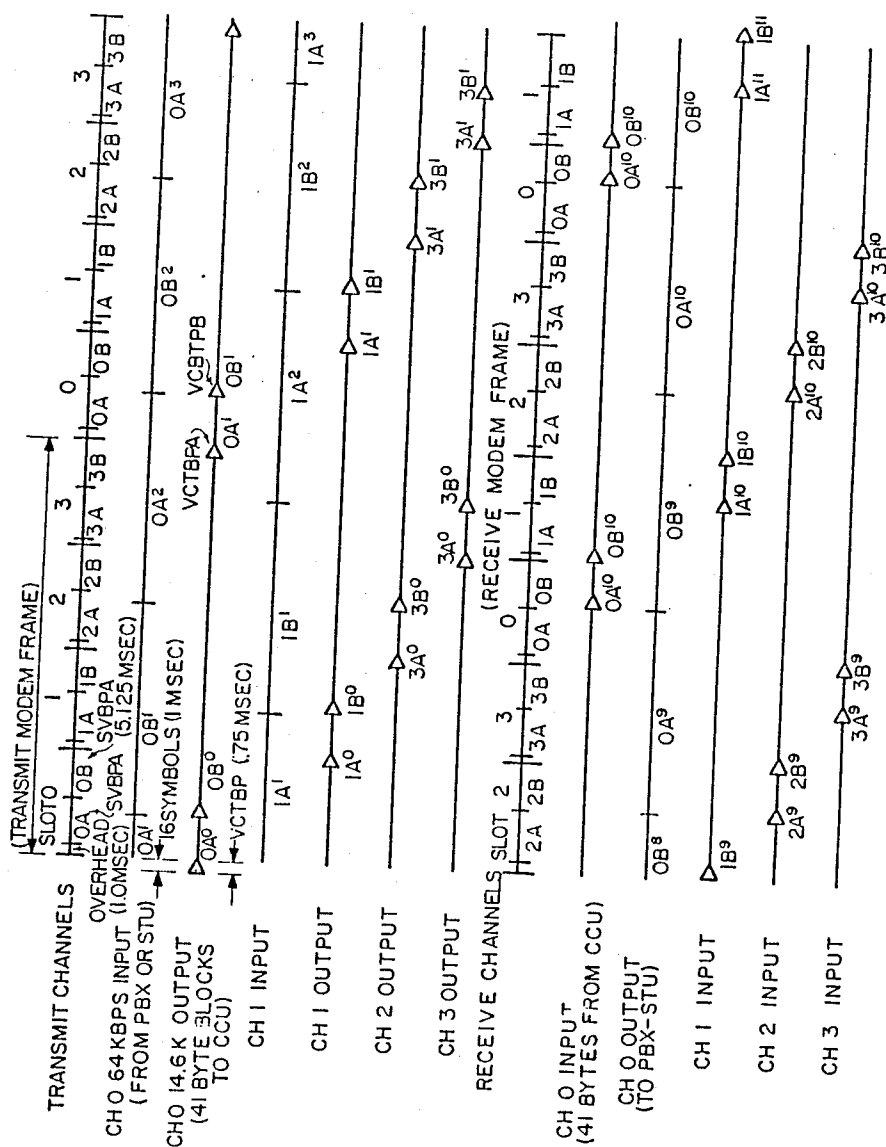 (TRANSMIT MODEM FRAME)
TRANSMIT CHANNELS
SLOT0 1 2 3 0 1 2 3
0A 0B 1A 1B 2A 2B 3A 3B 0A 0B 1A 1B 2A 2B 3A 3B
OVERHEAD (1.0MSEC)
SVBPA
SVBPA (5.125 MSEC)
CH0 64KBPS INPUT
(FROM PBX OR STU)
0A¹ 0B¹ 0A² 0B² 0A³
16 SYMBOLS (1 MSEC)
CH0 14.6K OUTPUT
(41 BYTE BLOCKS
TO CCU)
0A⁰ 0B⁰ 0A¹ 0B¹
VCTBPA
VCBTPB
VCTBP (.75 MSEC)
CH 1 INPUT
1A¹ 1B¹ 1A² 1B² 1A³
CH 1 OUTPUT
1A⁰ 1B⁰ 1A¹ 1B¹
CH 2 OUTPUT
3A⁰ 3B⁰ 3A¹ 3B¹
CH 3 OUTPUT
3A⁰ 3B⁰ 3A¹ 3B¹
(RECEIVE MODEM FRAME)
RECEIVE CHANNELS SLOT 2 3 0 1 2 3 0 1
2A 2B 3A 3B 0A 0B 1A 1B 2A 2B 3A 3B 0A 0B 1A 1B
CH 0 INPUT
(41 BYTES FROM CCU)
0A¹⁰ 0B¹⁰ 0A¹⁰ 0B¹⁰
CH 0 OUTPUT
(TO PBX-STU)
0B⁸ 0A⁹ 0B⁹ 0A¹⁰ 0B¹⁰
CH 1 INPUT
1B⁹ 1A¹⁰ 1B¹⁰ 1A¹¹ 1B¹¹
CH 2 INPUT
2A⁹ 2B⁹ 2A¹⁰ 2B¹⁰
CH 3 INPUT
3A⁹ 3B⁹ 3A¹⁰ 3B¹⁰